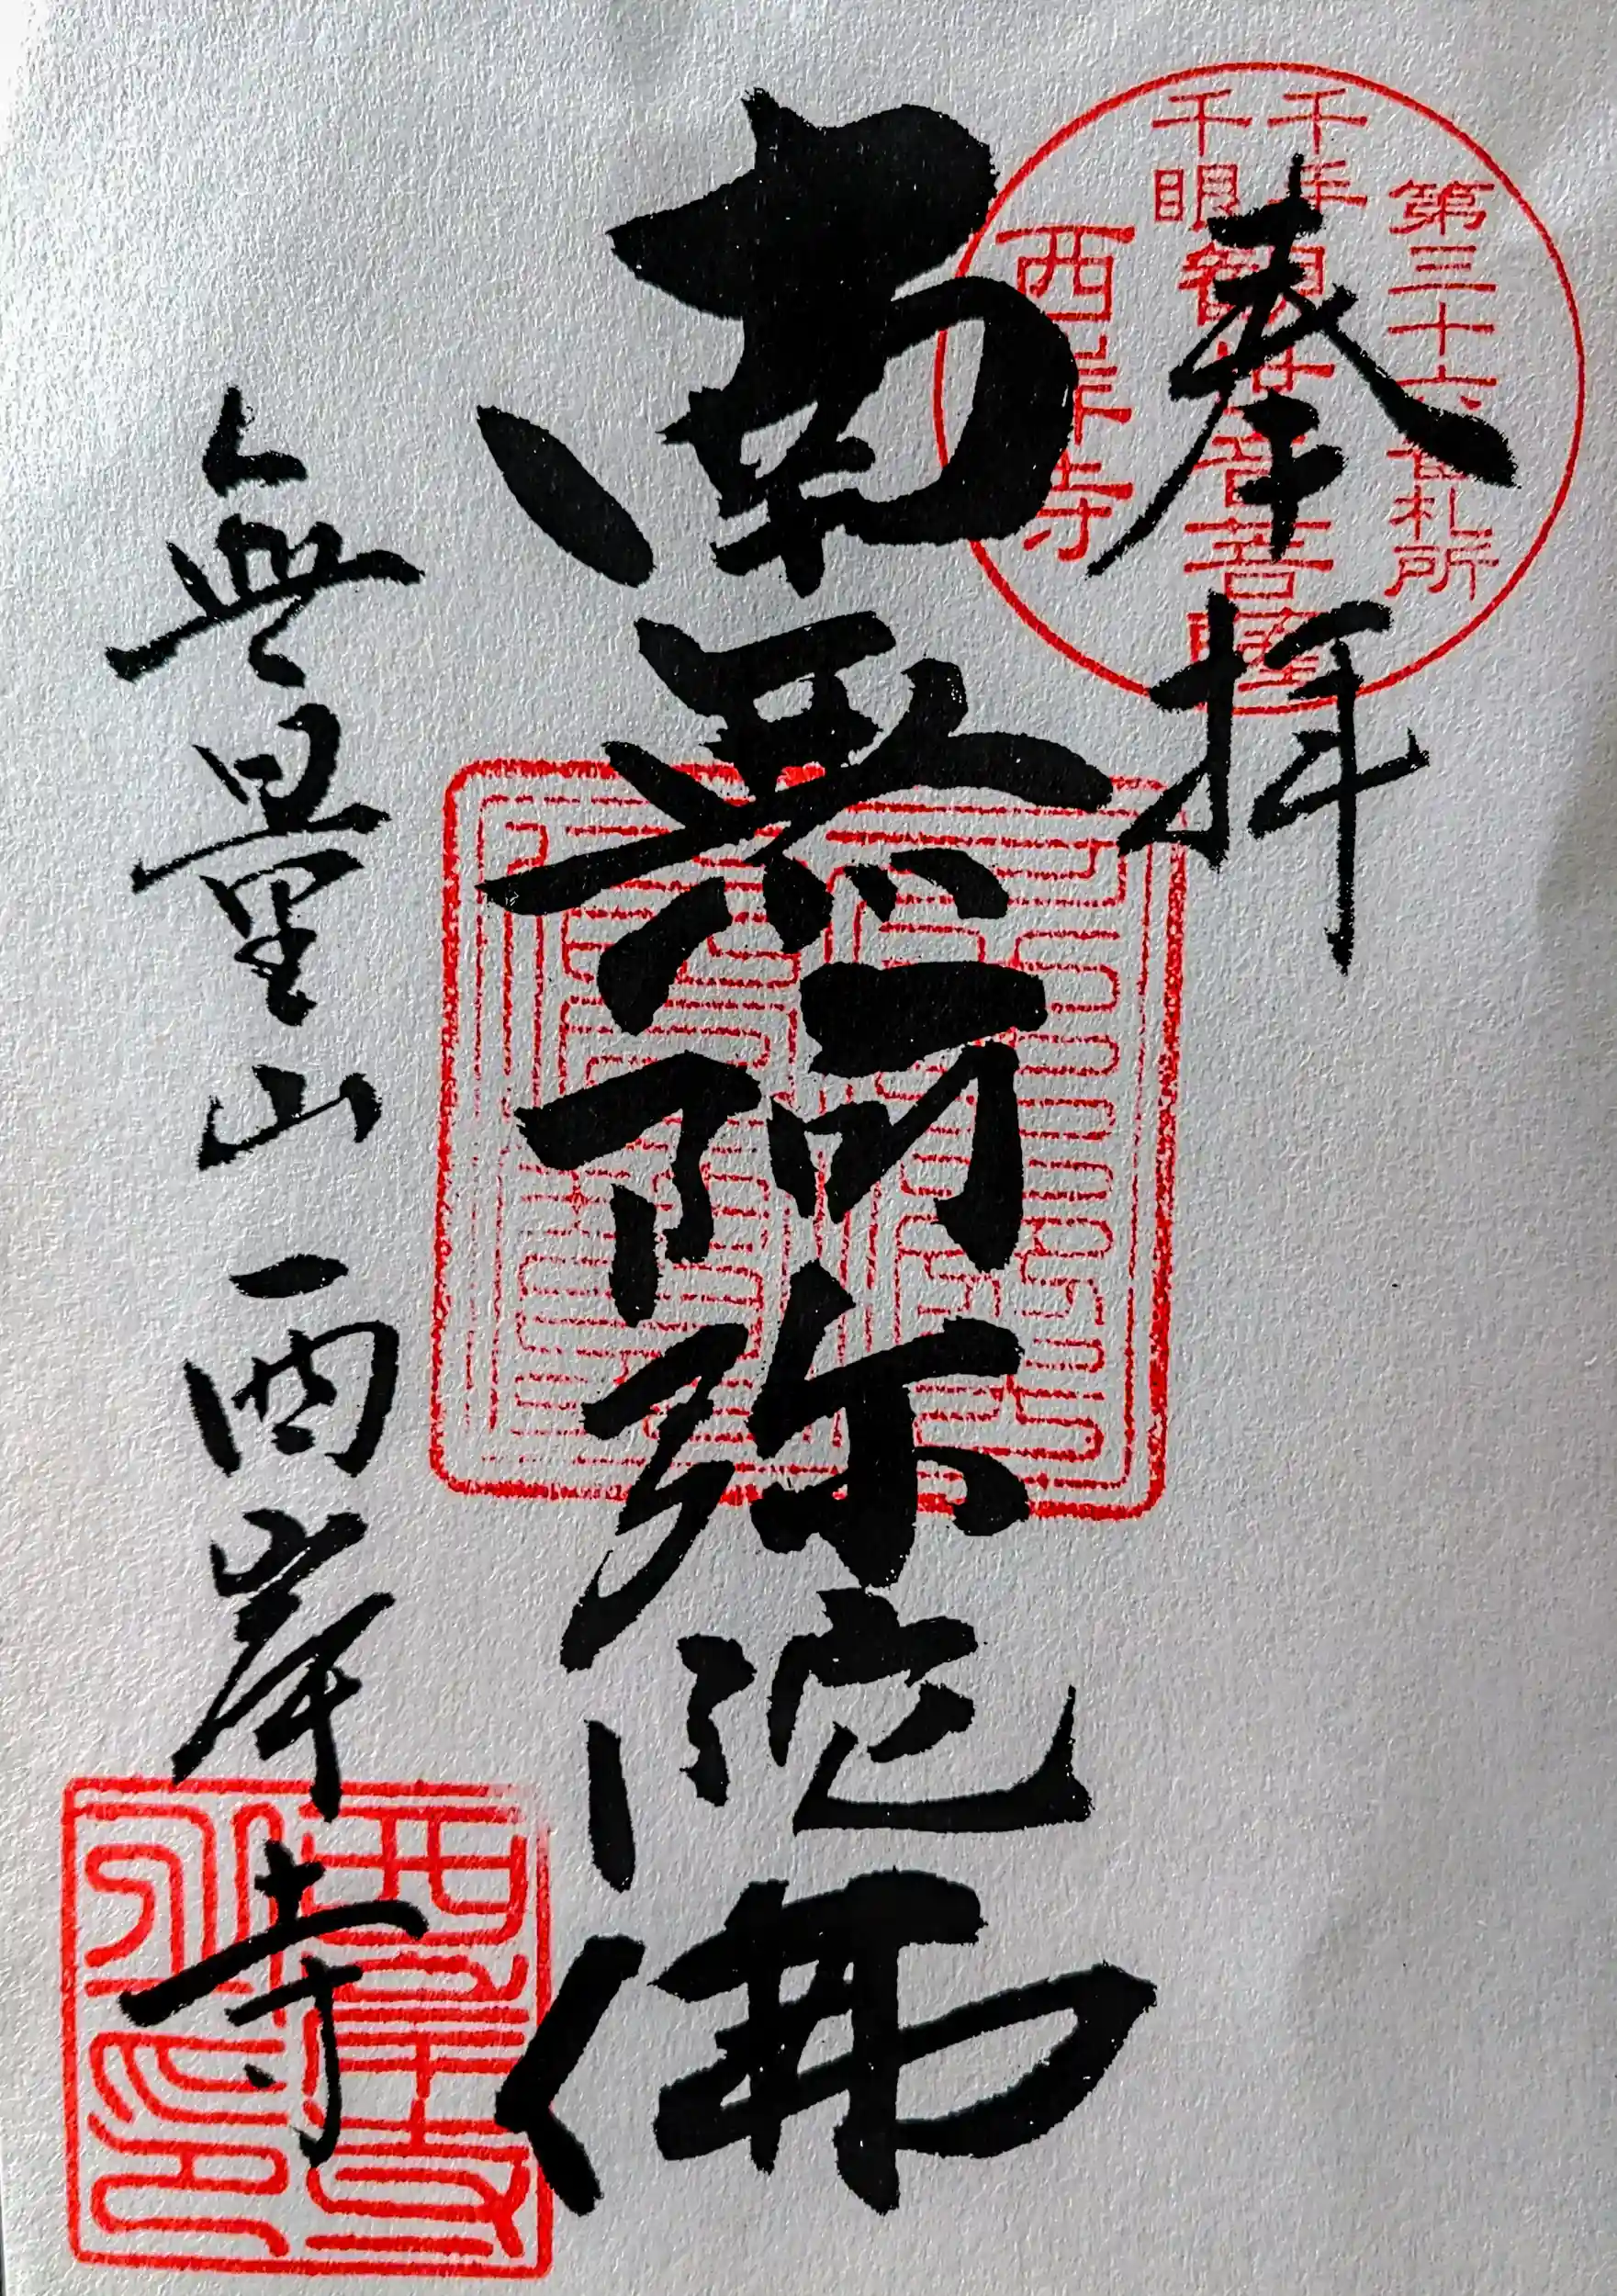 奉拝
第三十六番札所
千手
千眼
観世音菩薩
西岸寺
南無阿弥陀佛
無量山西岸寺